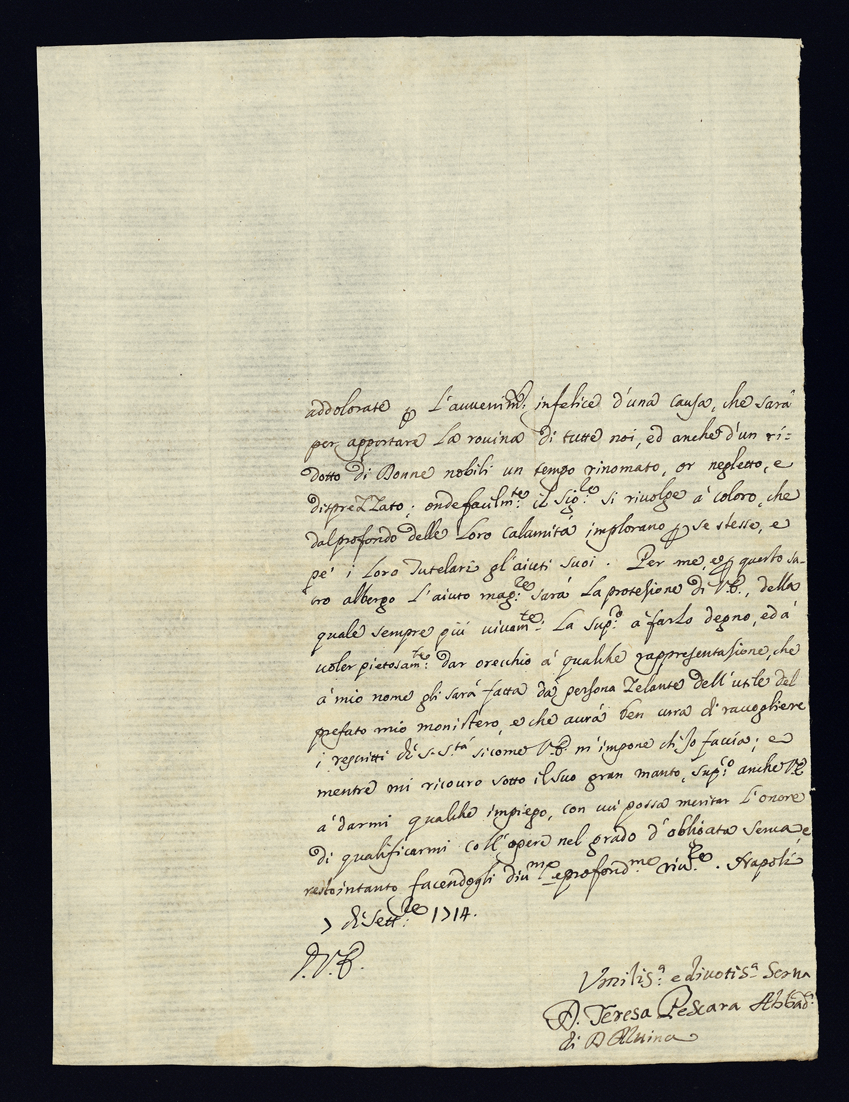 addolorate p l'avvenim.to infelice d'una causa, che sarà
per apportare la rovina di tutte noi, ed anche d'un ri=
dotto di Donne nobili un tempo rinomato, or negletto, e
disprezzato; onde facilm.te il Sig.re si rivolge à coloro, che
dal profondo delle loro calamità implorano p se stesse, e
pe' i loro Tutelari gl'aiuti suoi. Per me, e p questo sa-
cro albergo l'aiuto mag.re sarà la protesione di V.E., della
quale sempre più vivam.te la sup.co à farlo degno, ed à
voler pietosam.te dar orecchio à qualche rappresentasione, che
à mio nome gli sarà fatta da persona zelante dell'utile del
prefato mio monistero, e che aurà ben cura di raccogliere
i rescritti di S. S.tà sicome V.E. m'impone ch'io faccia; e
mentre mi ricouro sotto il suo gran manto, sup.co anche V.E.
à darmi qualche impiego, con cui possa meritar l'onore
di qualificarmi coll'opere nel grado d'obligata serua, e
resto intanto facendogli diu.me e profond.me riu.ze. Napoli
7 di Sett.bre 1714.
D.V.E.
Vmilis.a e divotis.a Serua
D. Teresa Pescara Abbad.a
di D. Aluina